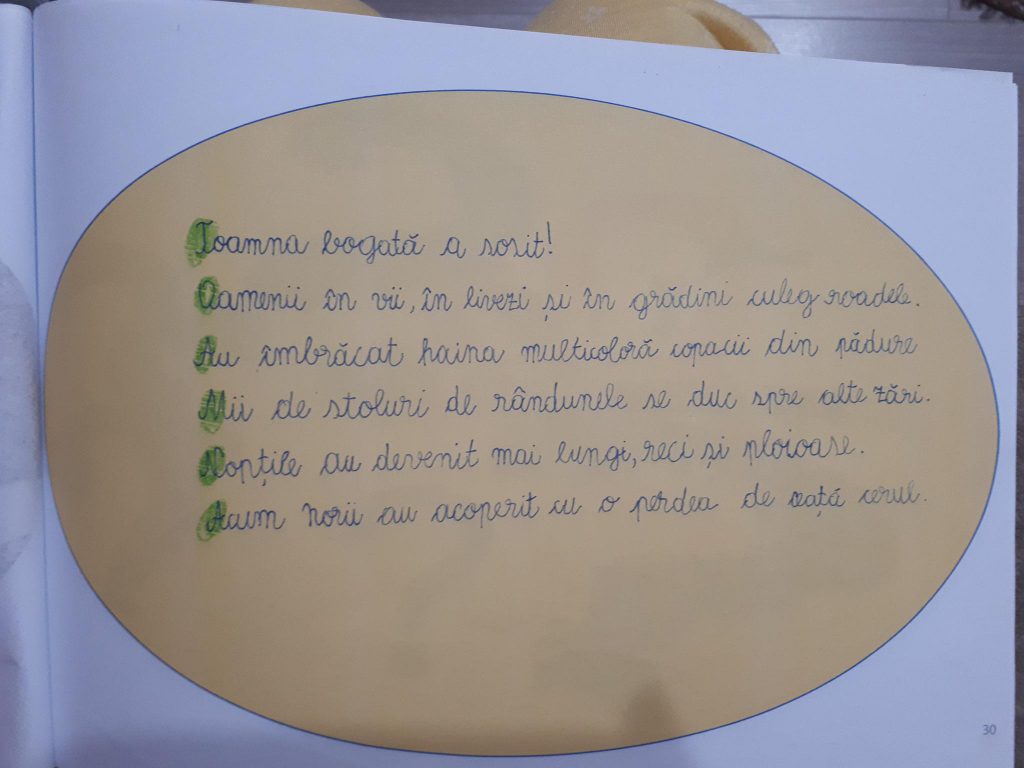 Toamna bogată a sosit!
Oamenii în vii, în livezi și în grădini culeg roadele.
Au îmbrăcat haina multicoloră copacii din pădure
Mii de stoluri de rândunele se duc spre alte zări.
Nopțile au devenit mai lungi, reci și ploioase.
Acum norii au acoperit cu o perdea de ceață cerul.
30